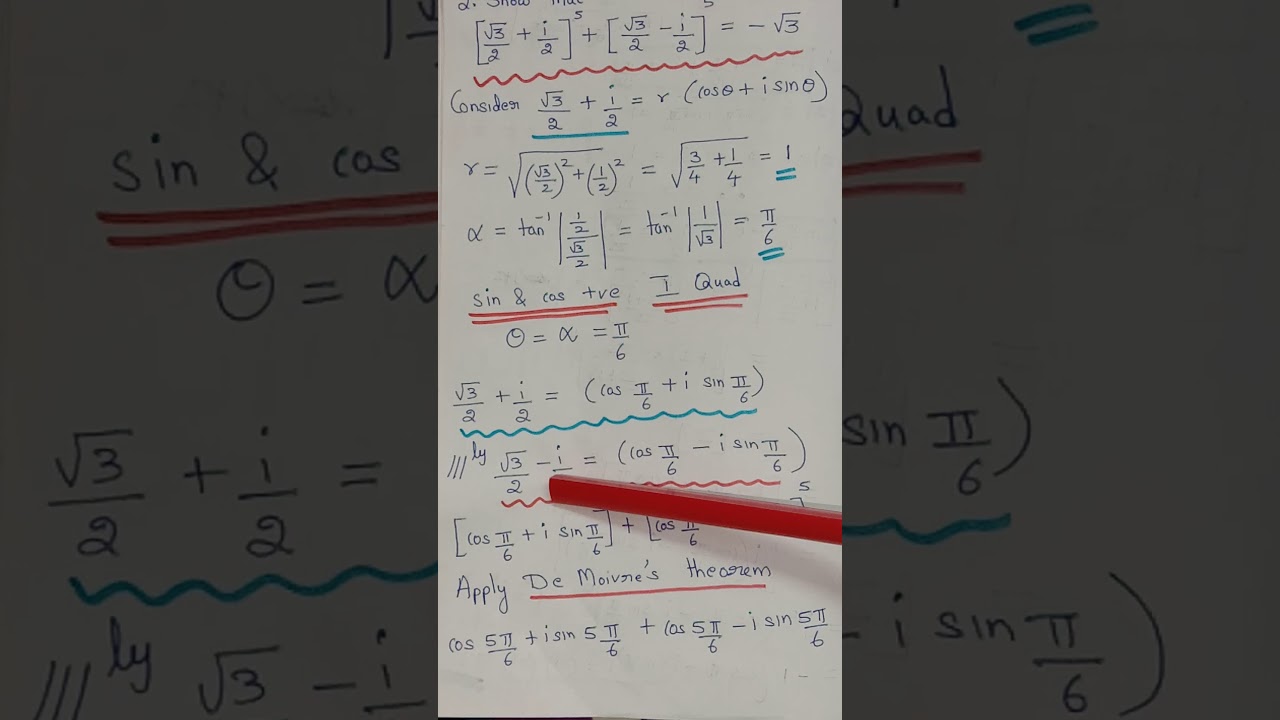 2. Show that
[√3/2 + i/2]^5 + [√3/2 - i/2]^5 = - √3
Consider √3/2 + i/2 = r (cosθ + i sinθ)
r = √((√3/2)^2 + (1/2)^2) = √(3/4 + 1/4) = 1
α = tan^-1 |(1/2)/(√3/2)| = tan^-1 |1/√3| = π/6
sin & cos +ve I Quad
θ = α = π/6
√3/2 + i/2 = (cos π/6 + i sin π/6)
///ly √3/2 - i/ = (cos π/6 - i sin π/6)
[cos π/6 + i sin π/6] + [cos π/6 ]^5
Apply De Moivre's theorem
cos 5π/6 + i sin 5π/6 + cos 5π/6 - i sin 5π/6